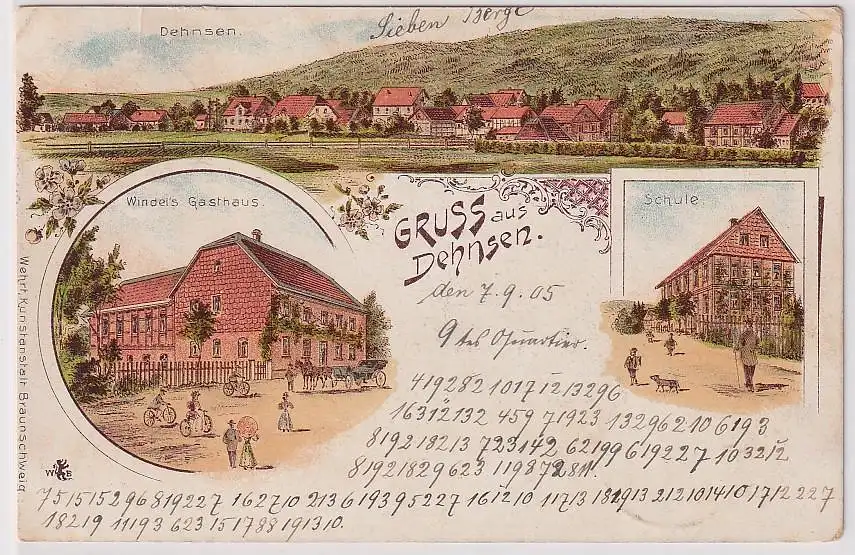 Dehnsen.
Sieben Berge
Windel's Gasthaus.
GRUSS aus
Dehnsen.
Schule
den 7. 9. 05
9 tes Quartier.
419282 1017 12 13296
16312132 459 71923 132962106193
8192 18213 723142 62199619227 1032 12
81921829623 119872811.
751515296819227 1627102136193952 27 161210 11713 18291321210141017 12 227
18219 11193 623151788191310.
W B
Wehrt, Kunstanstalt Braunschweig